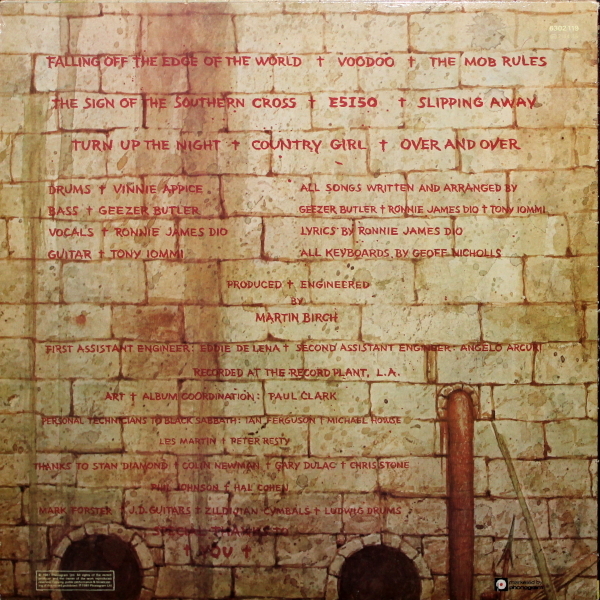 6302 119
FALLING OFF THE EDGE OF THE WORLD † VOODOO † THE MOB RULES
THE SIGN OF THE SOUTHERN CROSS † E5150 † SLIPPING AWAY
TURN UP THE NIGHT † COUNTRY GIRL † OVER AND OVER
DRUMS † VINNIE APPICE
BASS † GEEZER BUTLER
VOCALS † RONNIE JAMES DIO
GUITAR † TONY IOMMI
ALL SONGS WRITTEN AND ARRANGED BY
GEEZER BUTLER † RONNIE JAMES DIO † TONY IOMMI
LYRICS BY RONNIE JAMES DIO
ALL KEYBOARDS BY GEOFF NICHOLLS
PRODUCED † ENGINEERED
BY
MARTIN BIRCH
FIRST ASSISTANT ENGINEER: EDDIE DELENA † SECOND ASSISTANT ENGINEER: ANGELO ARCURI
RECORDED AT THE RECORD PLANT, L.A.
ART † ALBUM COORDINATION: PAUL CLARK
PERSONAL TECHNICIANS TO BLACK SABBATH: IAN FERGUSON † MICHAEL HOUSE
LES MARTIN † PETER RESTY
THANKS TO STAN DIAMOND † COLIN NEWMAN † GARY DULAC † CHRIS STONE
PHIL JOHNSON † HAL COHEN
MARK FORSTER † J.D. GUITARS † ZILDJIAN CYMBALS † LUDWIG DRUMS
SPECIAL THANKS TO
† YOU †
phonogram